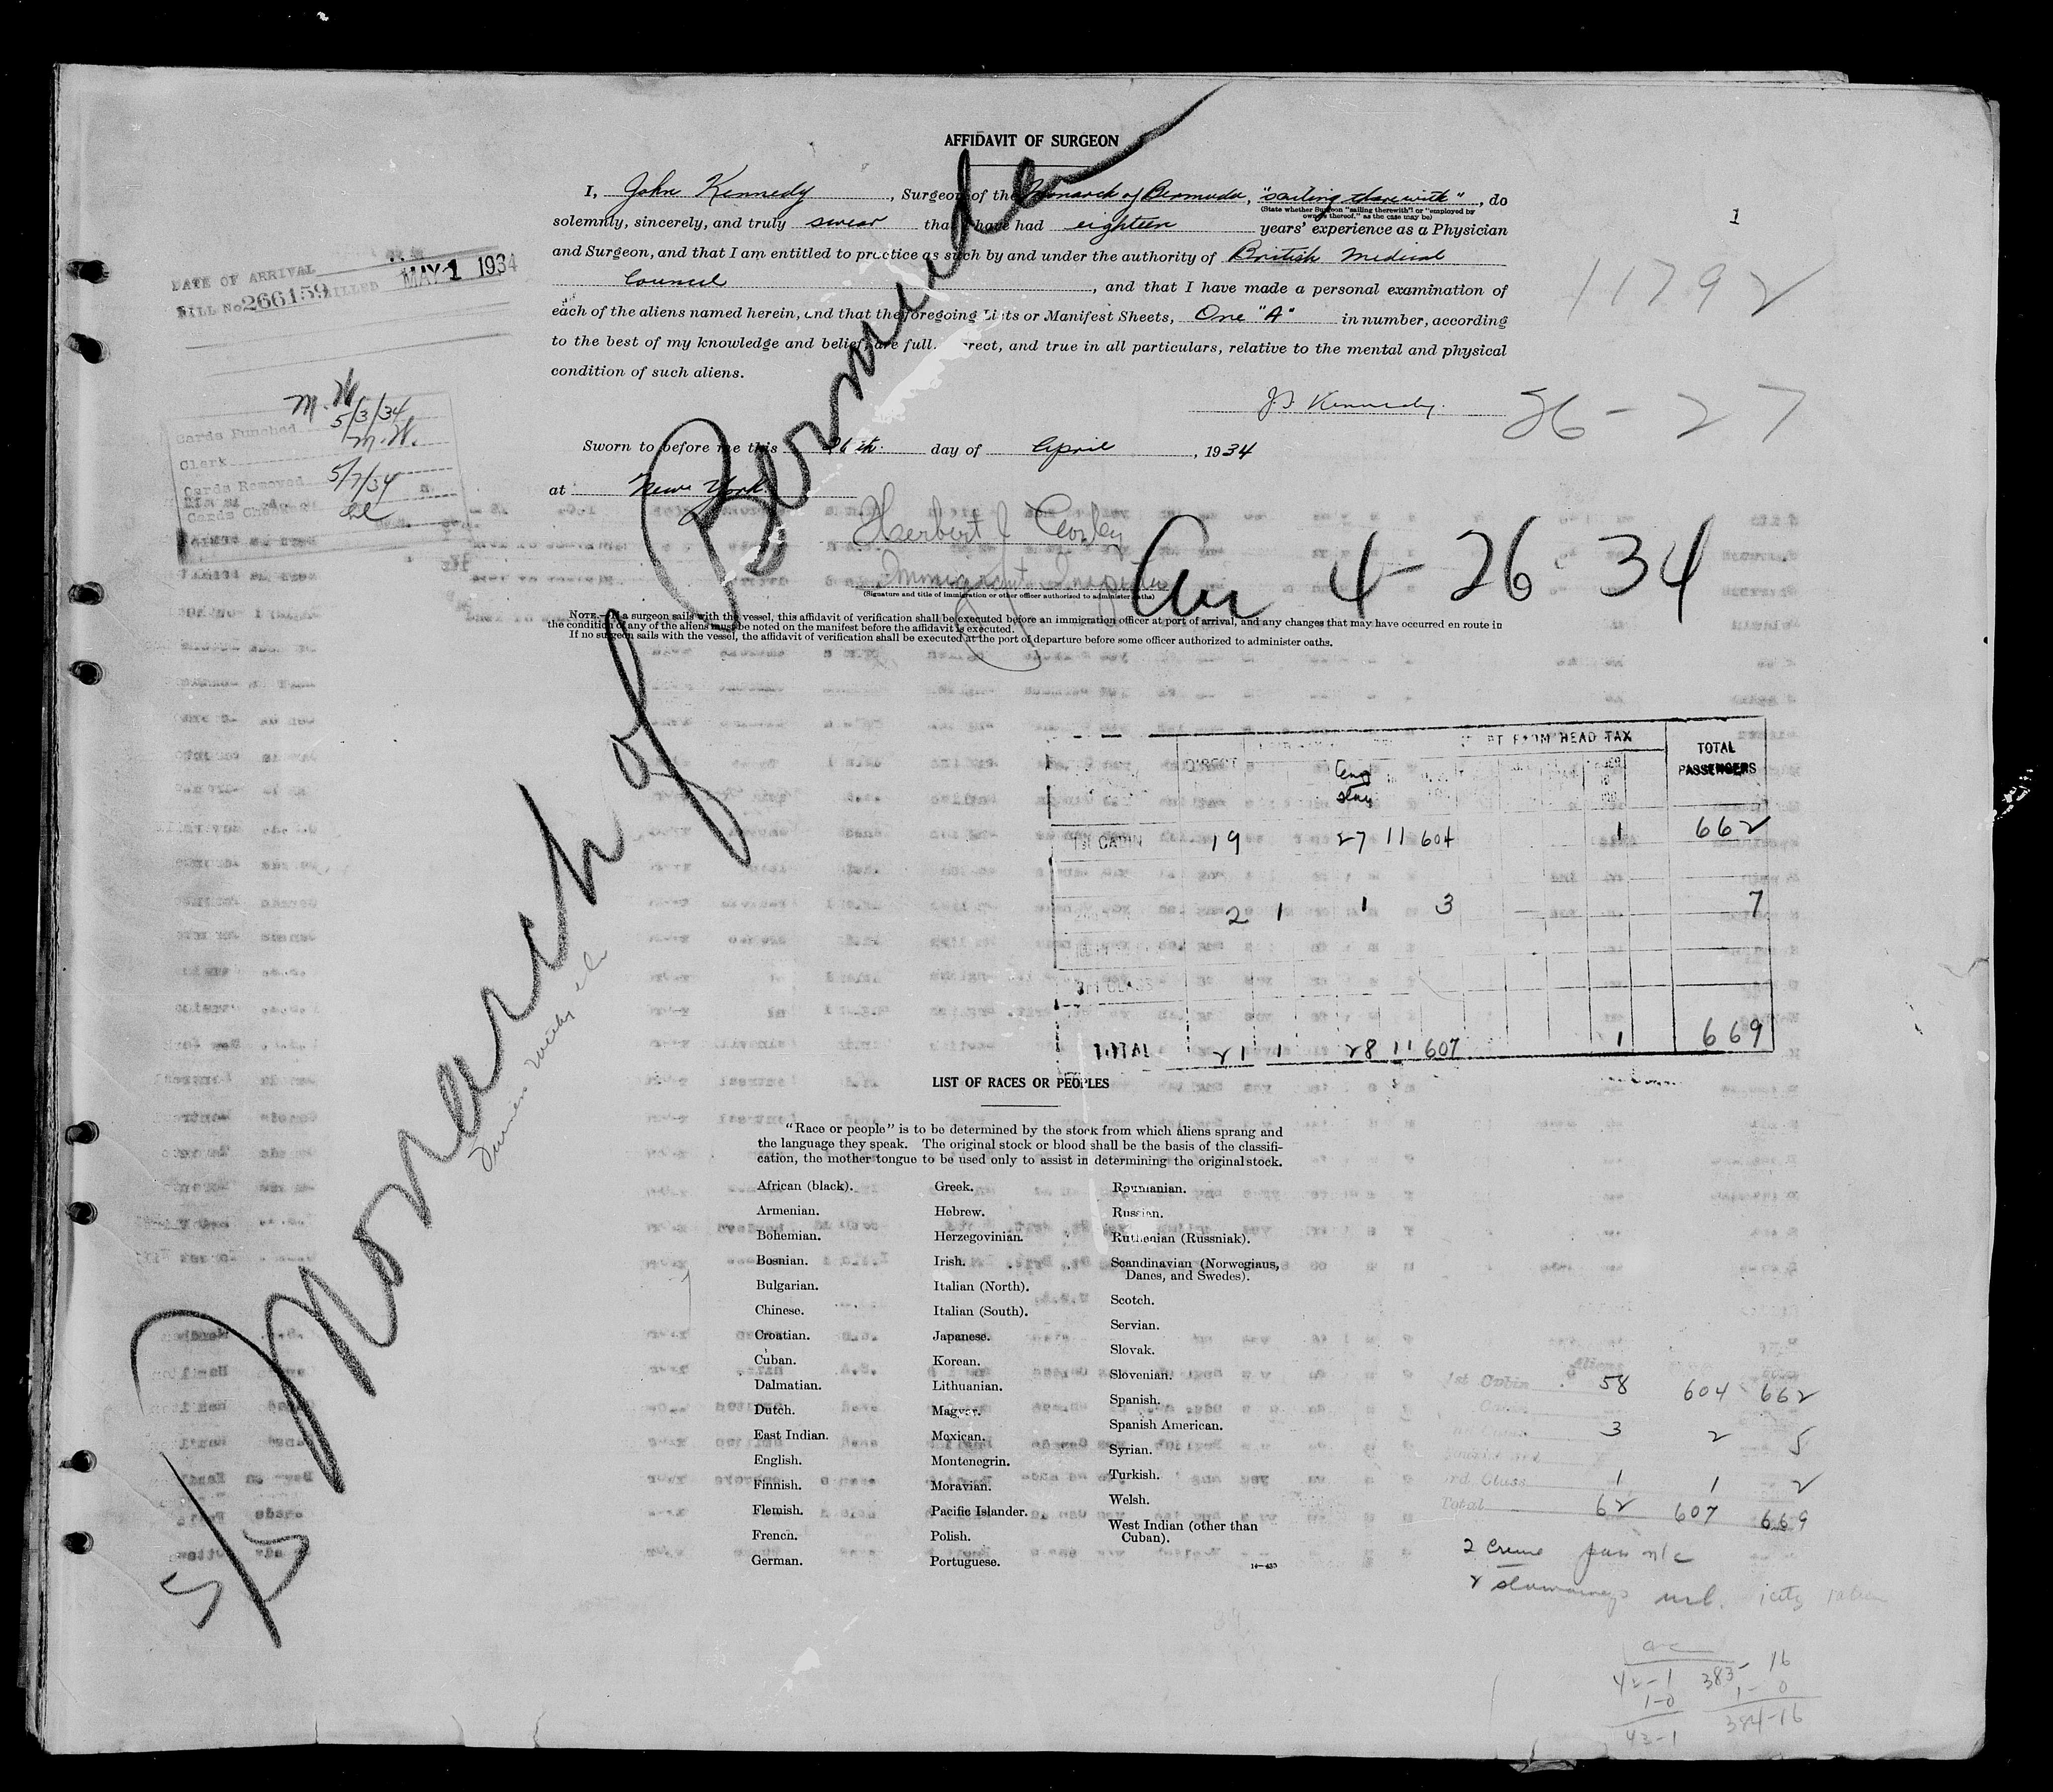 AFFIDAVIT OF SURGEON
I, John Kennedy, Surgeon of the Monarch of Bermuda, "sailing therewith", do
(State whether Surgeon "sailing therewith" or "employed by
owners thereof," as the case may be)
solemnly, sincerely, and truly swear that I have had eighteen years' experience as a Physician
and Surgeon, and that I am entitled to practice as such by and under the authority of British Medical
Council, and that I have made a personal examination of
each of the aliens named herein, and that the foregoing Lists or Manifest Sheets, One "A" in number, according
to the best of my knowledge and belief, are full, correct, and true in all particulars, relative to the mental and physical
condition of such aliens.
J. J. Kennedy.
Sworn to before me this 26th day of April, 1934
at New York
Herbert J
(Signature and title of immigration or other officer authorized to administer oaths)
NOTE.—If a surgeon sails with the vessel, this affidavit of verification shall be executed before an immigration officer at port of arrival, and any changes that may have occurred en route in
the condition of any of the aliens must be noted on the manifest before the affidavit is executed.
If no surgeon sails with the vessel, the affidavit of verification shall be executed at the port of departure before some officer authorized to administer oaths.
1
11792
26-27
DATE OF ARRIVAL
BILL No. 266159 BILLED MAY 1 1934
M. H.
Cards Punched 5/3/34
Clerk M. H.
Cards Removed 5/7/34
Cards Changed
Monarch of Bermuda
Arr 4-26-34
5/5
DIRECT
FROM HEAD TAX
TOTAL
PASSENGERS
1st CABIN 19 27 11 604 1 662
2 1 1 3 7
CLASS
TOTAL 21 1 28 11 607 1 669
LIST OF RACES OR PEOPLES
"Race or people" is to be determined by the stock from which aliens sprang and
the language they speak. The original stock or blood shall be the basis of the classifi-
cation, the mother tongue to be used only to assist in determining the original stock.
African (black).
Armenian.
Bohemian.
Bosnian.
Bulgarian.
Chinese.
Croatian.
Cuban.
Dalmatian.
Dutch.
East Indian.
English.
Finnish.
Flemish.
French.
German.
Greek.
Hebrew.
Herzegovinian.
Irish.
Italian (North).
Italian (South).
Japanese.
Korean.
Lithuanian.
Magyar.
Mexican.
Montenegrin.
Moravian.
Pacific Islander.
Polish.
Portuguese.
Roumanian.
Russian.
Ruthenian (Russniak).
Scandinavian (Norwegians,
Danes, and Swedes).
Scotch.
Servian.
Slovak.
Slovenian.
Spanish.
Spanish American.
Syrian.
Turkish.
Welsh.
West Indian (other than
Cuban).
Aliens
1st Cabin 58 604 662
3 2 5
3rd. Class 1 1 2
Total 62 607 669
42-1 383-16
1-0 1-0
43-1 384-16